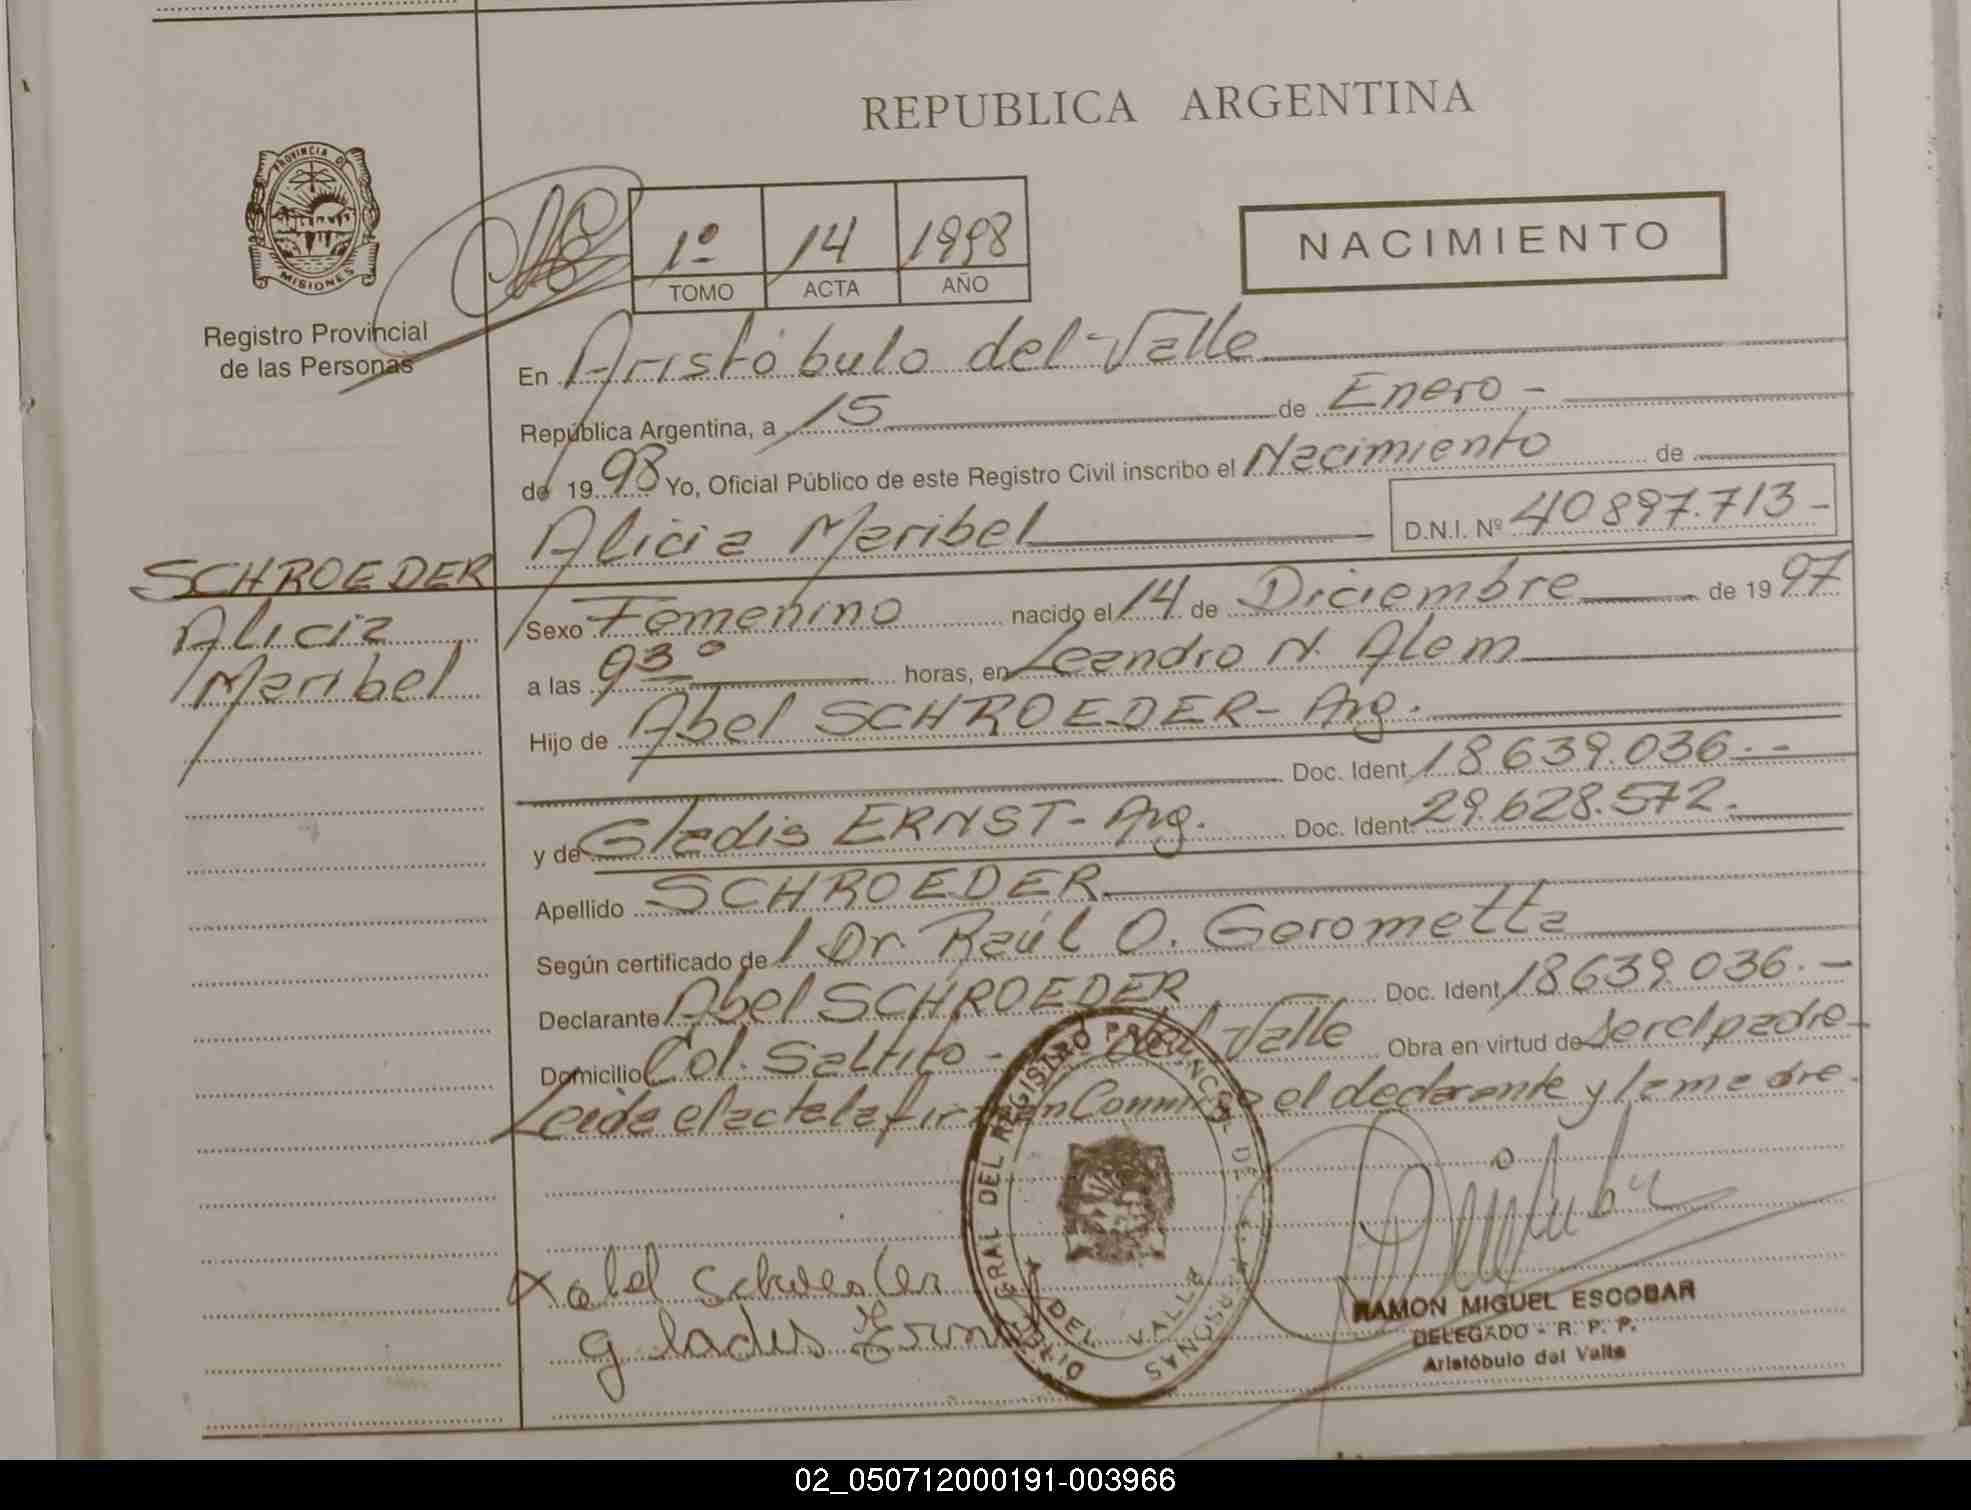 REPUBLICA ARGENTINA
PROVINCIA DE
MISIONES
Registro Provincial
de las Personas
1º 14 1998
TOMO ACTA AÑO
NACIMIENTO
En Aristóbulo del Valle
República Argentina, a 15 de Enero -
de 1998 Yo, Oficial Público de este Registro Civil inscribo el Nacimiento de
Alicia Maribel D.N.I. Nº 40897.713-
SCHROEDER
Alicia
Maribel
Sexo Femenino nacido el 14 de Diciembre de 1997
a las 930 horas, en Leandro N. Alem
Hijo de Abel SCHROEDER- Arg.
Doc. Ident. 18639.036.-
y de Gladis ERNST- Arg. Doc. Ident. 29.628.572.
Apellido SCHROEDER
Según certificado de l Dr. Raúl O. Gerometta
Declarante Abel SCHROEDER Doc. Ident. 18639.036.-
Domicilio Col. Saltito - del Valle Obra en virtud de ser el padre-
Leida el acta la firman Conmigo el declarante y la madre.
DEL REGISTRO
DEL VALLE
abel
gladis
RAMON MIGUEL ESCOBAR
DELEGADO - R. P. P.
Aristóbulo del Valle
02_050712000191-003966